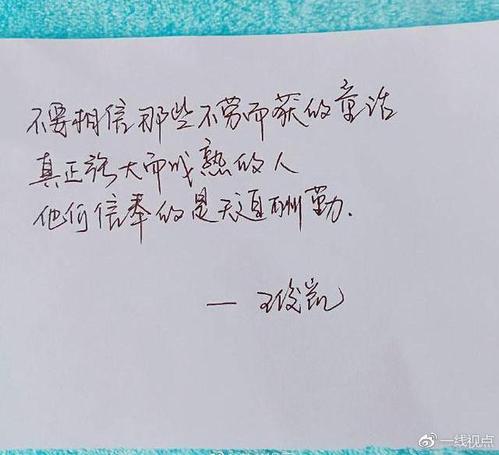 不要相信那些不劳而获的童话
真正强大而成熟的人
他们信奉的是天道酬勤.
— 王俊凯
一线视点